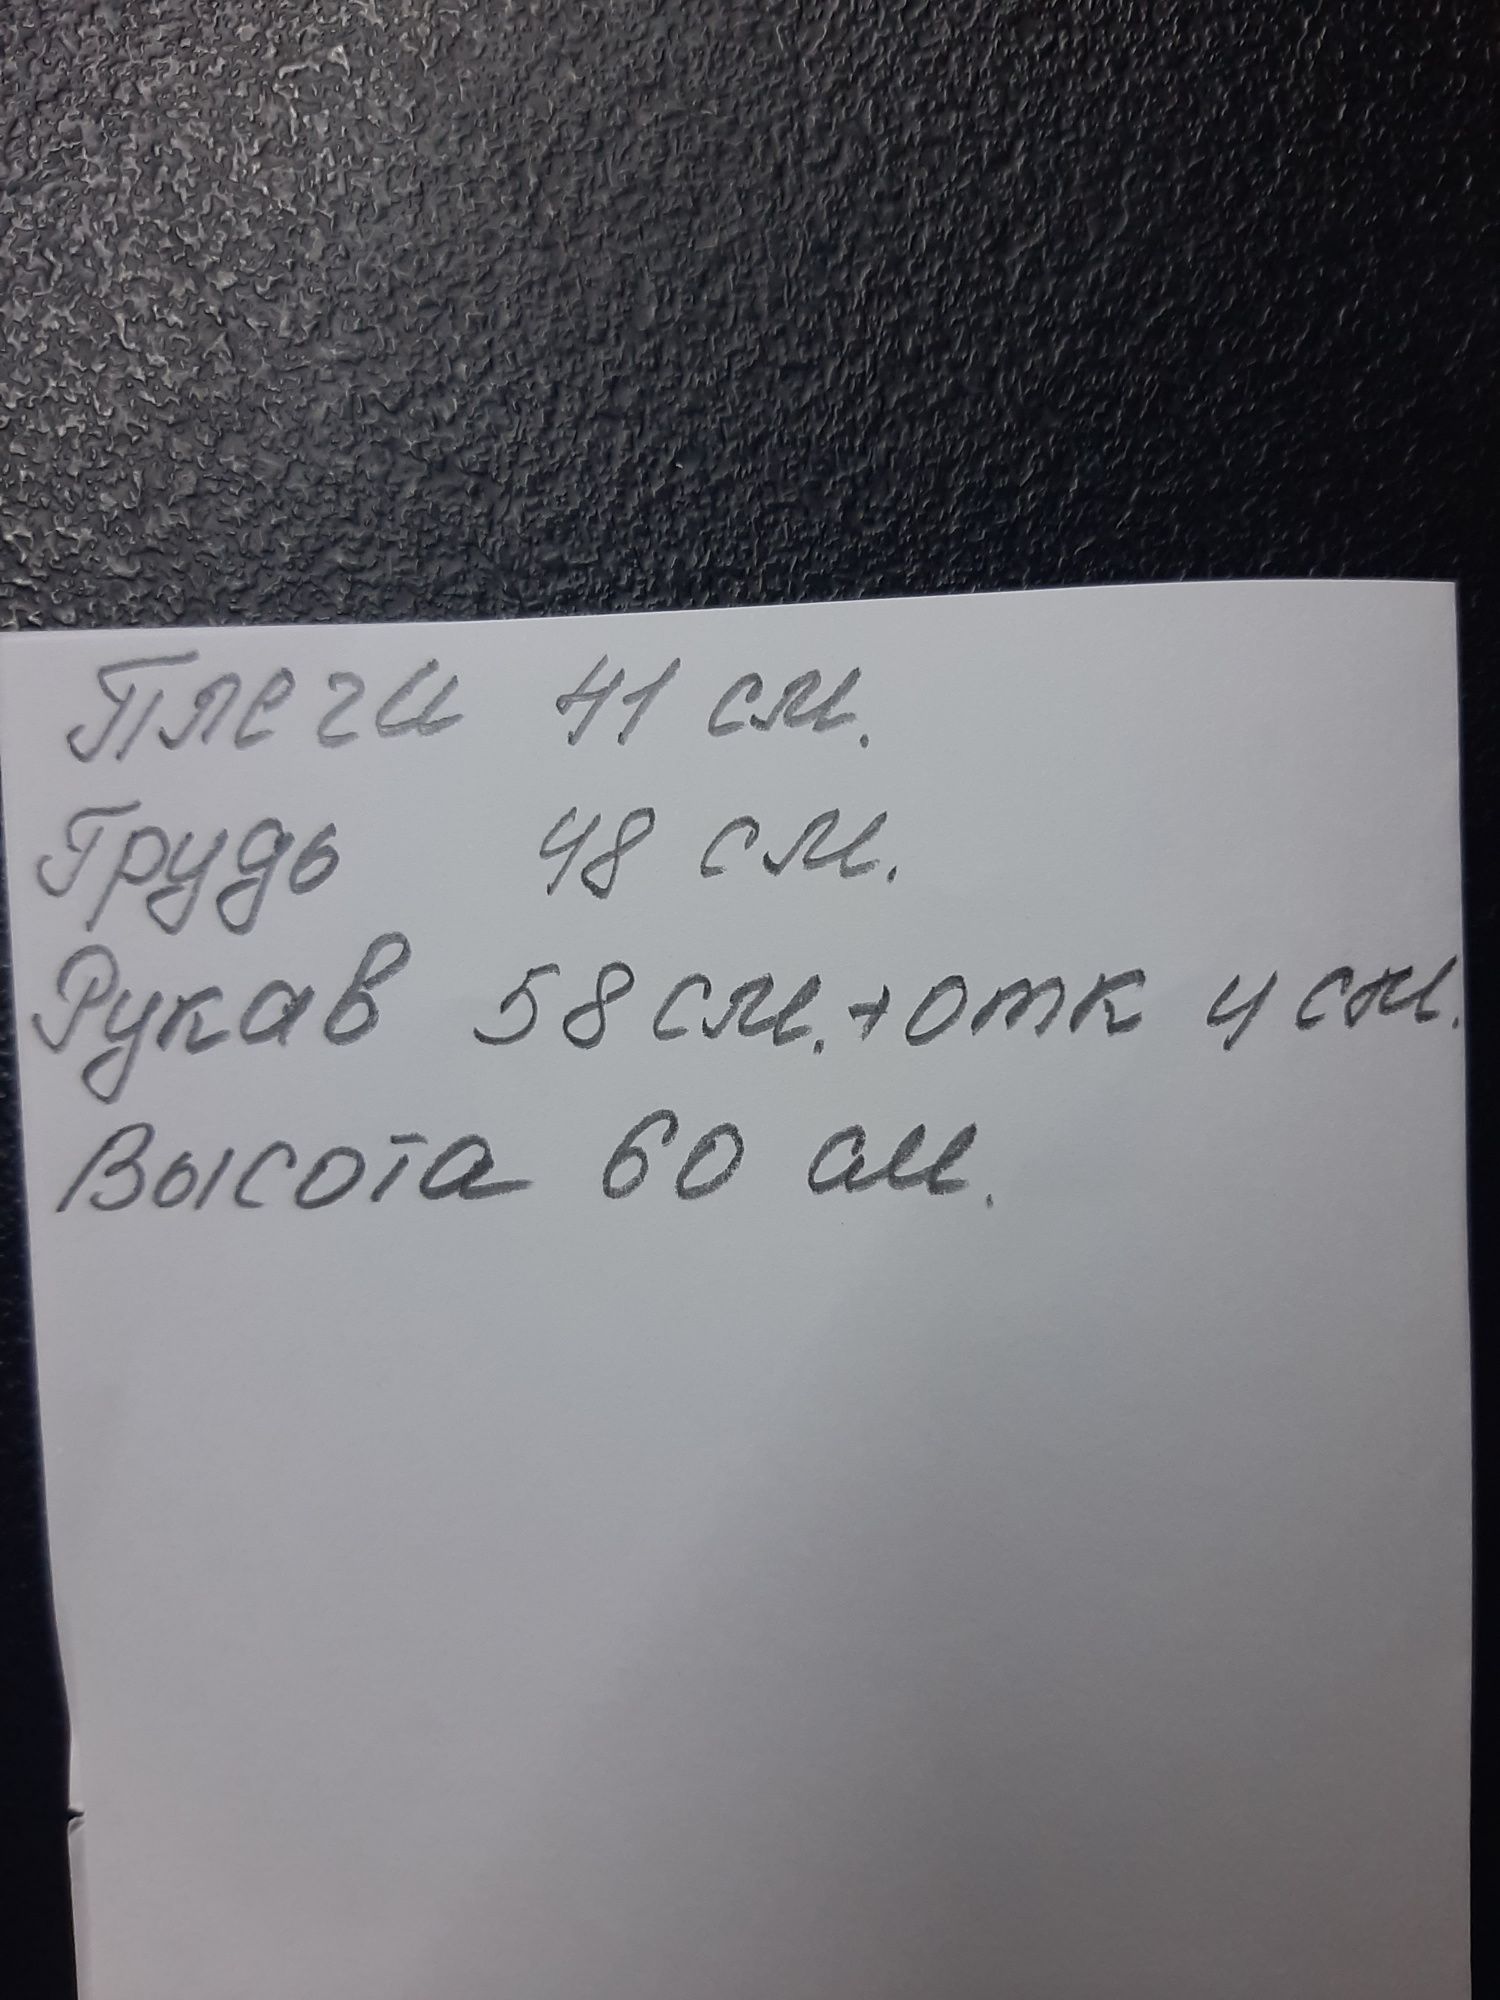 Плечи 41 см.
Грудь 48 см.
Рукав 58 см. + отк 4 см.
Высота 60 см.